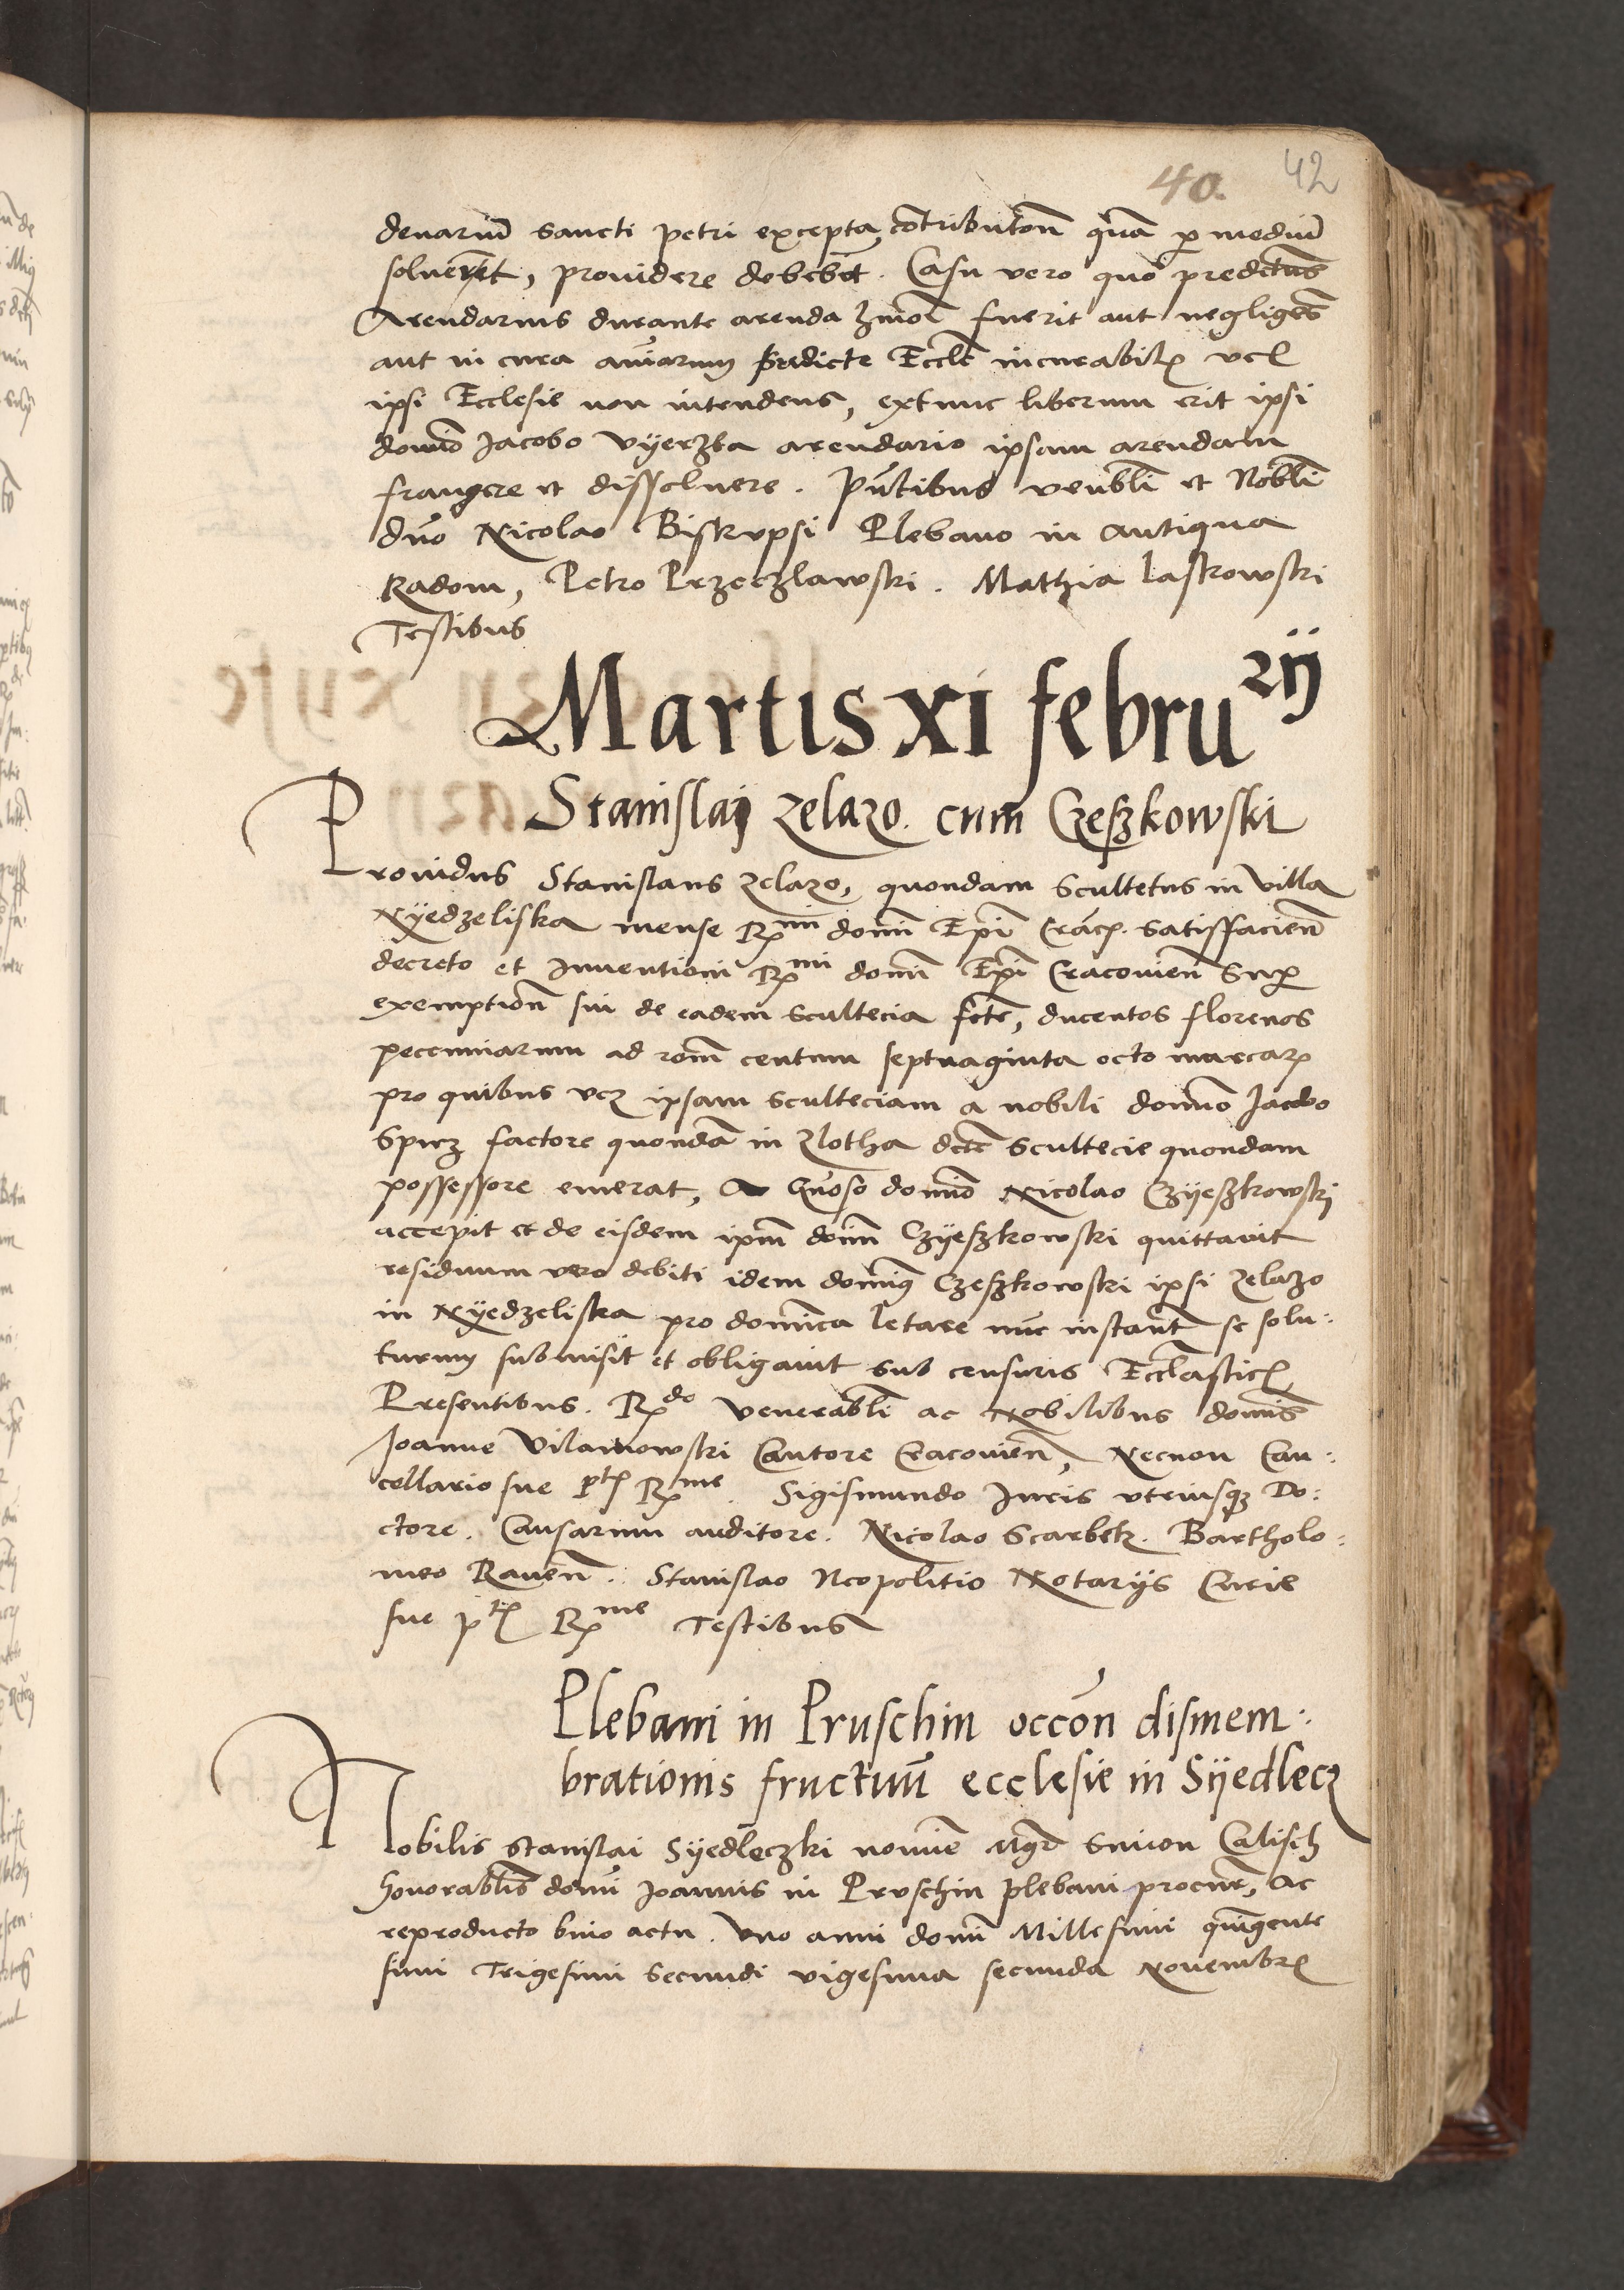 40. 42
denariū sancti petri excepta cōtributōn quā ꝑ mediū
soluerēt, prouidere debebit. Casu vero quo predictus
Arendarius durante arenda fuerit aut negligēs
aut in cura aīarum predicte Eccle incurabilꝭ vel
ipsi Ecclesie non intendens, extunc liberum erit ipsi
domīo Jacobo Vyerzba arendario ipsam arendam
frangere et dissoluere. Pn̄tibus venbli et Nobli
dn̄o Nicolao Biskupsi Plebano in antiqua
Radom, Petro Przeczlawski. Mathia Laskowski
Testibus
Martis xi februarij
Stanislaj Zelazo. cum Czeszkowski
Prouidus Stanislaus Zelazo, quondam scultetus in villa
Nyedzeliska mense Rmi domi Epi Crac. satisfacien̄
decreto et Inuentioni Rmi domi Epi Cracouien̄ Suꝑ
exemption̄ sui de eadem scultecia fctē, ducentos florenos
peccuniarum ad rōm centum septuaginta octo marcarꝭ
pro quibus vcz ipsam sculteciam a nobili domīo Jacobo
Spirz factore quondā in Zlotha dcte scultecie quondam
possessore emerat, A Gn̄oso domīo Nicolao Czyeszkowski
accepit et de eisdem ipm̄ dom̄ Czyeszkowski quittauit
residuum vero debiti idem domīnꝰ Czeszkowski ipsi Zelazo
in Nyedzeliska pro domīca letare nūc instant̄ se solu:
turum submisit et obligauit sub censuris Ecclasticꝭ
Presentibus. Rdo Venerabli ac Nobilibus domīs
Joanne Vilamowski Cantore Cracouien̄, Necnon Can:
cellario sue ptꝭ Rme. Sigismundo Iuris vtriusqz Do:
ctore. Causarum auditore. Nicolao Scarbek. Bartholo:
meo Rauen̄. Stanislao Neopolitio Notarijs Curie
sue ptꝭ Rme Testibus
Plebani in Pruschin occōn dismem:
brationis fructuū ecclesie in Syedlecz
Nobilis Stanislai Syedleczki nomīe Mgr̄ Simon Calisch
honorablis domi Joannis in Pruschin plebani procur̄, ac
reproducto bino actu. Vno anni domi Millesimi quīgente
simi Trigesimi Secundi vigesima secunda Nouembrꝭ